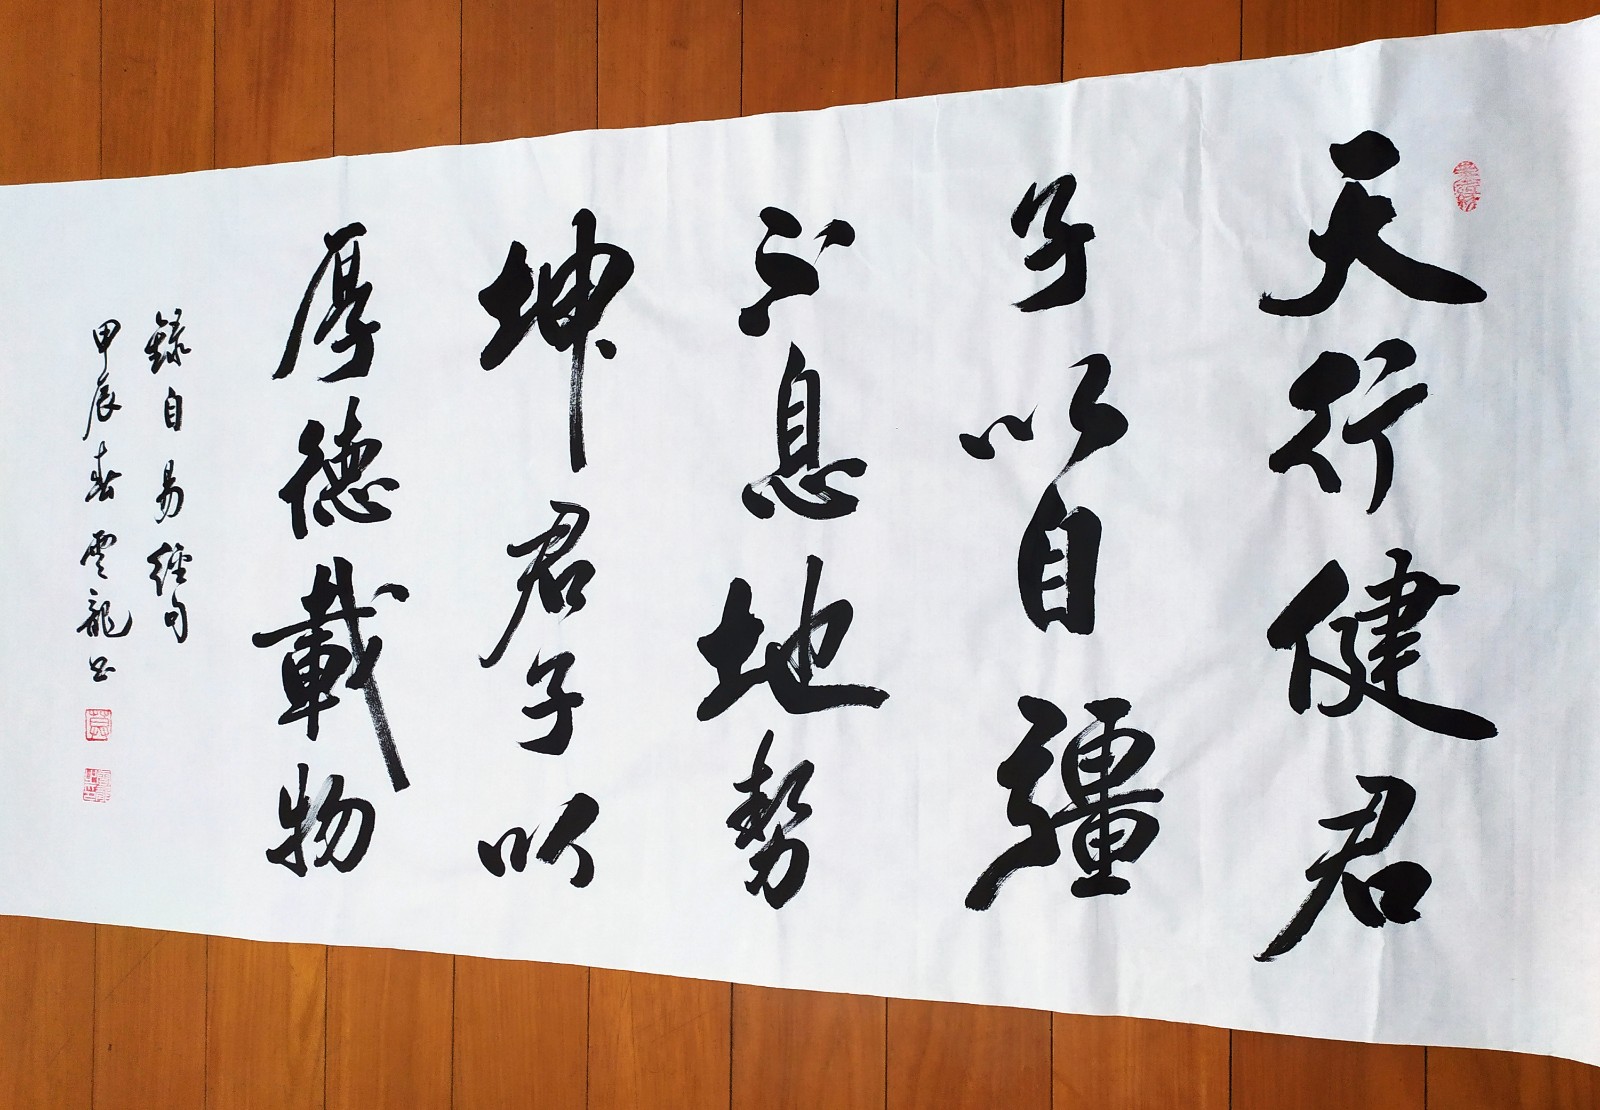 天行健君
子以自彊
不息地勢
坤君子以
厚德載物
錄自易經句
甲辰春雲龍書